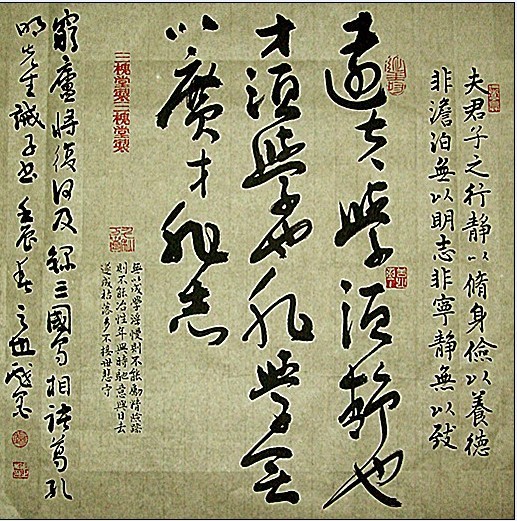 夫君子之行靜以脩身儉以養德
非澹泊無以明志非寧靜無以致
遠夫學須靜也
才須學也非學無
以廣才非志
三槐堂製三槐堂製
無以成學淫慢則不能勵精險躁
則不能冶性年與時馳意與日去
遂成枯落多不接世悲守
窮廬將復何及錄三國蜀相諸葛孔
明先生誡子書壬辰春